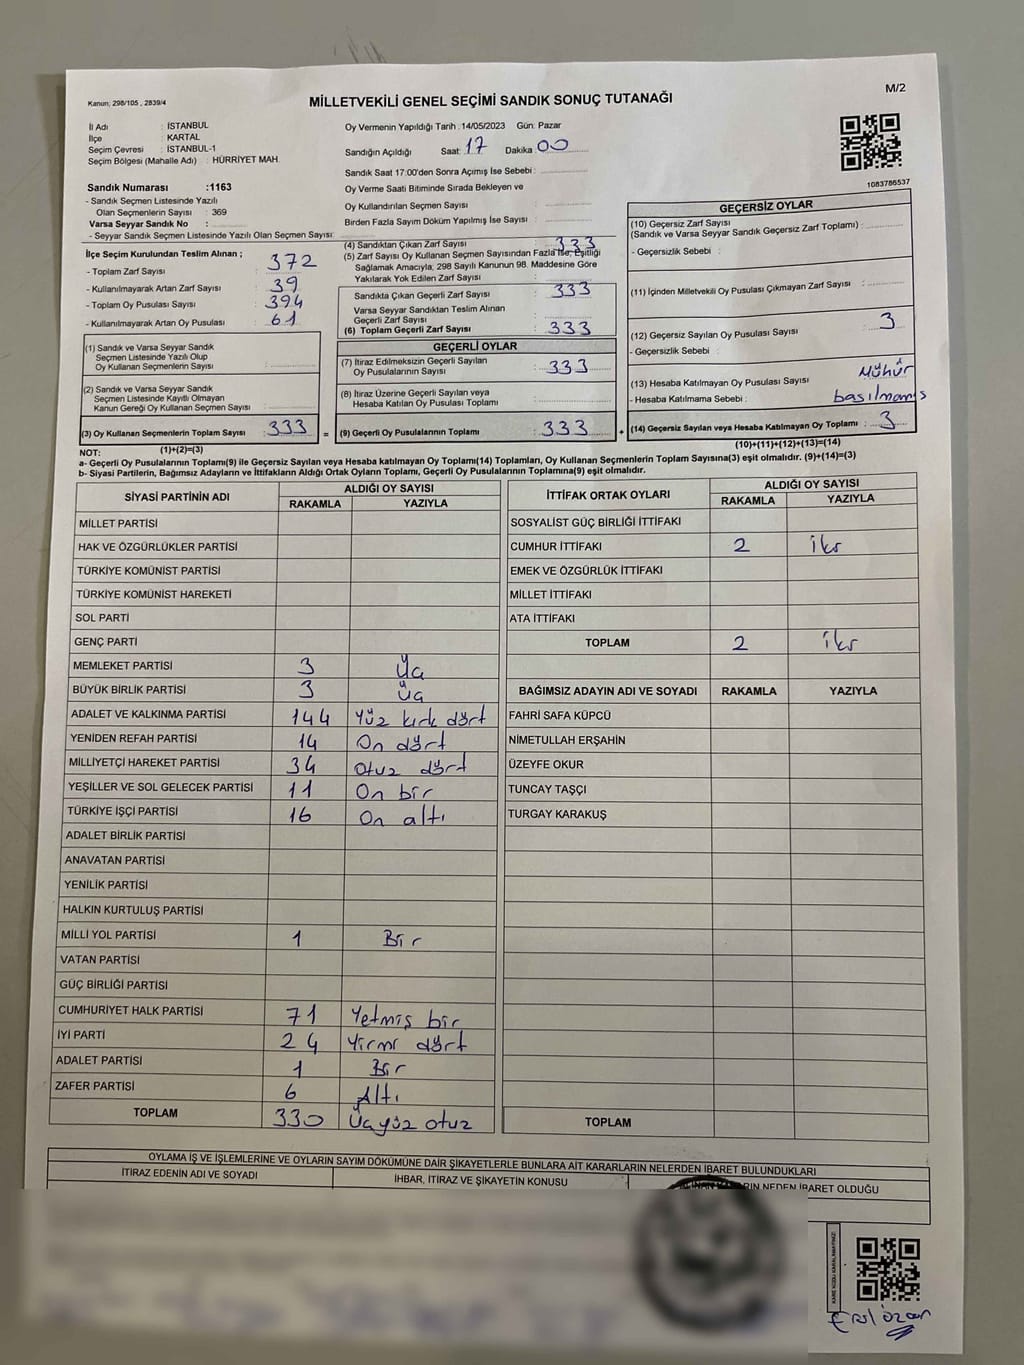 Kanun; 298/105 , 2839/4
MİLLETVEKİLİ GENEL SEÇİMİ SANDIK SONUÇ TUTANAĞI
M/2
İl Adı : İSTANBUL
İlçe : KARTAL
Seçim Çevresi : İSTANBUL-1
Seçim Bölgesi (Mahalle Adı) : HÜRRİYET MAH.
Sandık Numarası :1163
- Sandık Seçmen Listesinde Yazılı
Olan Seçmenlerin Sayısı : 369
Varsa Seyyar Sandık No :
- Seyyar Sandık Seçmen Listesinde Yazılı Olan Seçmen Sayısı:
Oy Vermenin Yapıldığı Tarih :14/05/2023 Gün: Pazar
Sandığın Açıldığı Saat: 17 Dakika 00
Sandık Saat 17:00'den Sonra Açımış İse Sebebi :
Oy Verme Saati Bitiminde Sırada Bekleyen ve
Oy Kullandırılan Seçmen Sayısı
Birden Fazla Sayım Döküm Yapılmış İse Sayısı :
1083786537
İlçe Seçim Kurulundan Teslim Alınan ;
- Toplam Zarf Sayısı : 372
- Kullanılmayarak Artan Zarf Sayısı : 39
- Toplam Oy Pusulası Sayısı : 394
- Kullanılmayarak Artan Oy Pusulası : 61
(1) Sandık ve Varsa Seyyar Sandık
Seçmen Listesinde Yazılı Olup
Oy Kullanan Seçmenlerin Sayısı :
(2) Sandık ve Varsa Seyyar Sandık
Seçmen Listesinde Kayıtlı Olmayan
Kanun Gereği Oy Kullanan Seçmen Sayısı :
(3) Oy Kullanan Seçmenlerin Toplam Sayısı : 333
(4) Sandıktan Çıkan Zarf Sayısı : 333
(5) Zarf Sayısı Oy Kullanan Seçmen Sayısından Fazla İse, Eşitliği
Sağlamak Amacıyla, 298 Sayılı Kanunun 98. Maddesine Göre
Yakılarak Yok Edilen Zarf Sayısı :
Sandıkta Çıkan Geçerli Zarf Sayısı : 333
Varsa Seyyar Sandıktan Teslim Alınan
Geçerli Zarf Sayısı :
(6) Toplam Geçerli Zarf Sayısı : 333
GEÇERLİ OYLAR
(7) İtiraz Edilmeksizin Geçerli Sayılan
Oy Pusulalarının Sayısı : 333
(8) İtiraz Üzerine Geçerli Sayılan veya
Hesaba Katılan Oy Pusulası Toplamı :
= (9) Geçerli Oy Pusulalarının Toplamı : 333 +
GEÇERSİZ OYLAR
(10) Geçersiz Zarf Sayısı
(Sandık ve Varsa Seyyar Sandık Geçersiz Zarf Toplamı) :
- Geçersizlik Sebebi :
(11) İçinden Milletvekili Oy Pusulası Çıkmayan Zarf Sayısı :
(12) Geçersiz Sayılan Oy Pusulası Sayısı : 3
- Geçersizlik Sebebi :
(13) Hesaba Katılmayan Oy Pusulası Sayısı : Mühür
- Hesaba Katılmama Sebebi : basılmamış
(14) Geçersiz Sayılan veya Hesaba Katılmayan Oy Toplamı : 3
NOT: (1)+(2)=(3)
(10)+(11)+(12)+(13)=(14)
a- Geçerli Oy Pusulalarının Toplamı(9) ile Geçersiz Sayılan veya Hesaba katılmayan Oy Toplamı(14) Toplamları, Oy Kullanan Seçmenlerin Toplam Sayısına(3) eşit olmalıdır. (9)+(14)=(3)
b- Siyasi Partilerin, Bağımsız Adayların ve İttifakların Aldığı Ortak Oyların Toplamı, Geçerli Oy Pusulalarının Toplamına(9) eşit olmalıdır.
SİYASİ PARTİNİN ADI ALDIĞI OY SAYISI
RAKAMLA YAZIYLA
MİLLET PARTİSİ
HAK VE ÖZGÜRLÜKLER PARTİSİ
TÜRKİYE KOMÜNİST PARTİSİ
TÜRKİYE KOMÜNİST HAREKETİ
SOL PARTİ
GENÇ PARTİ
MEMLEKET PARTİSİ 3 Üç
BÜYÜK BİRLİK PARTİSİ 3 Üç
ADALET VE KALKINMA PARTİSİ 144 Yüz kırk dört
YENİDEN REFAH PARTİSİ 14 On dört
MİLLİYETÇİ HAREKET PARTİSİ 34 Otuz dört
YEŞİLLER VE SOL GELECEK PARTİSİ 11 On bir
TÜRKİYE İŞÇİ PARTİSİ 16 On altı
ADALET BİRLİK PARTİSİ
ANAVATAN PARTİSİ
YENİLİK PARTİSİ
HALKIN KURTULUŞ PARTİSİ
MİLLİ YOL PARTİSİ 1 Bir
VATAN PARTİSİ
GÜÇ BİRLİĞİ PARTİSİ
CUMHURİYET HALK PARTİSİ 71 Yetmiş bir
İYİ PARTİ 24 Yirmi dört
ADALET PARTİSİ 1 Bir
ZAFER PARTİSİ 6 Altı
TOPLAM 330 Üçyüz otuz
İTTİFAK ORTAK OYLARI ALDIĞI OY SAYISI
RAKAMLA YAZIYLA
SOSYALİST GÜÇ BİRLİĞİ İTTİFAKI
CUMHUR İTTİFAKI 2 iki
EMEK VE ÖZGÜRLÜK İTTİFAKI
MİLLET İTTİFAKI
ATA İTTİFAKI
TOPLAM 2 iki
BAĞIMSIZ ADAYIN ADI VE SOYADI RAKAMLA YAZIYLA
FAHRİ SAFA KÜPCÜ
NİMETULLAH ERŞAHİN
ÜZEYFE OKUR
TUNCAY TAŞÇI
TURGAY KARAKUŞ
TOPLAM
OYLAMA İŞ VE İŞLEMLERİNE VE OYLARIN SAYIM DÖKÜMÜNE DAİR ŞİKAYETLERLE BUNLARA AİT KARARLARIN NELERDEN İBARET BULUNDUKLARI
İTİRAZ EDENİN ADI VE SOYADI İHBAR, İTİRAZ VE ŞİKAYETİN KONUSU NEDEN İBARET OLDUĞU